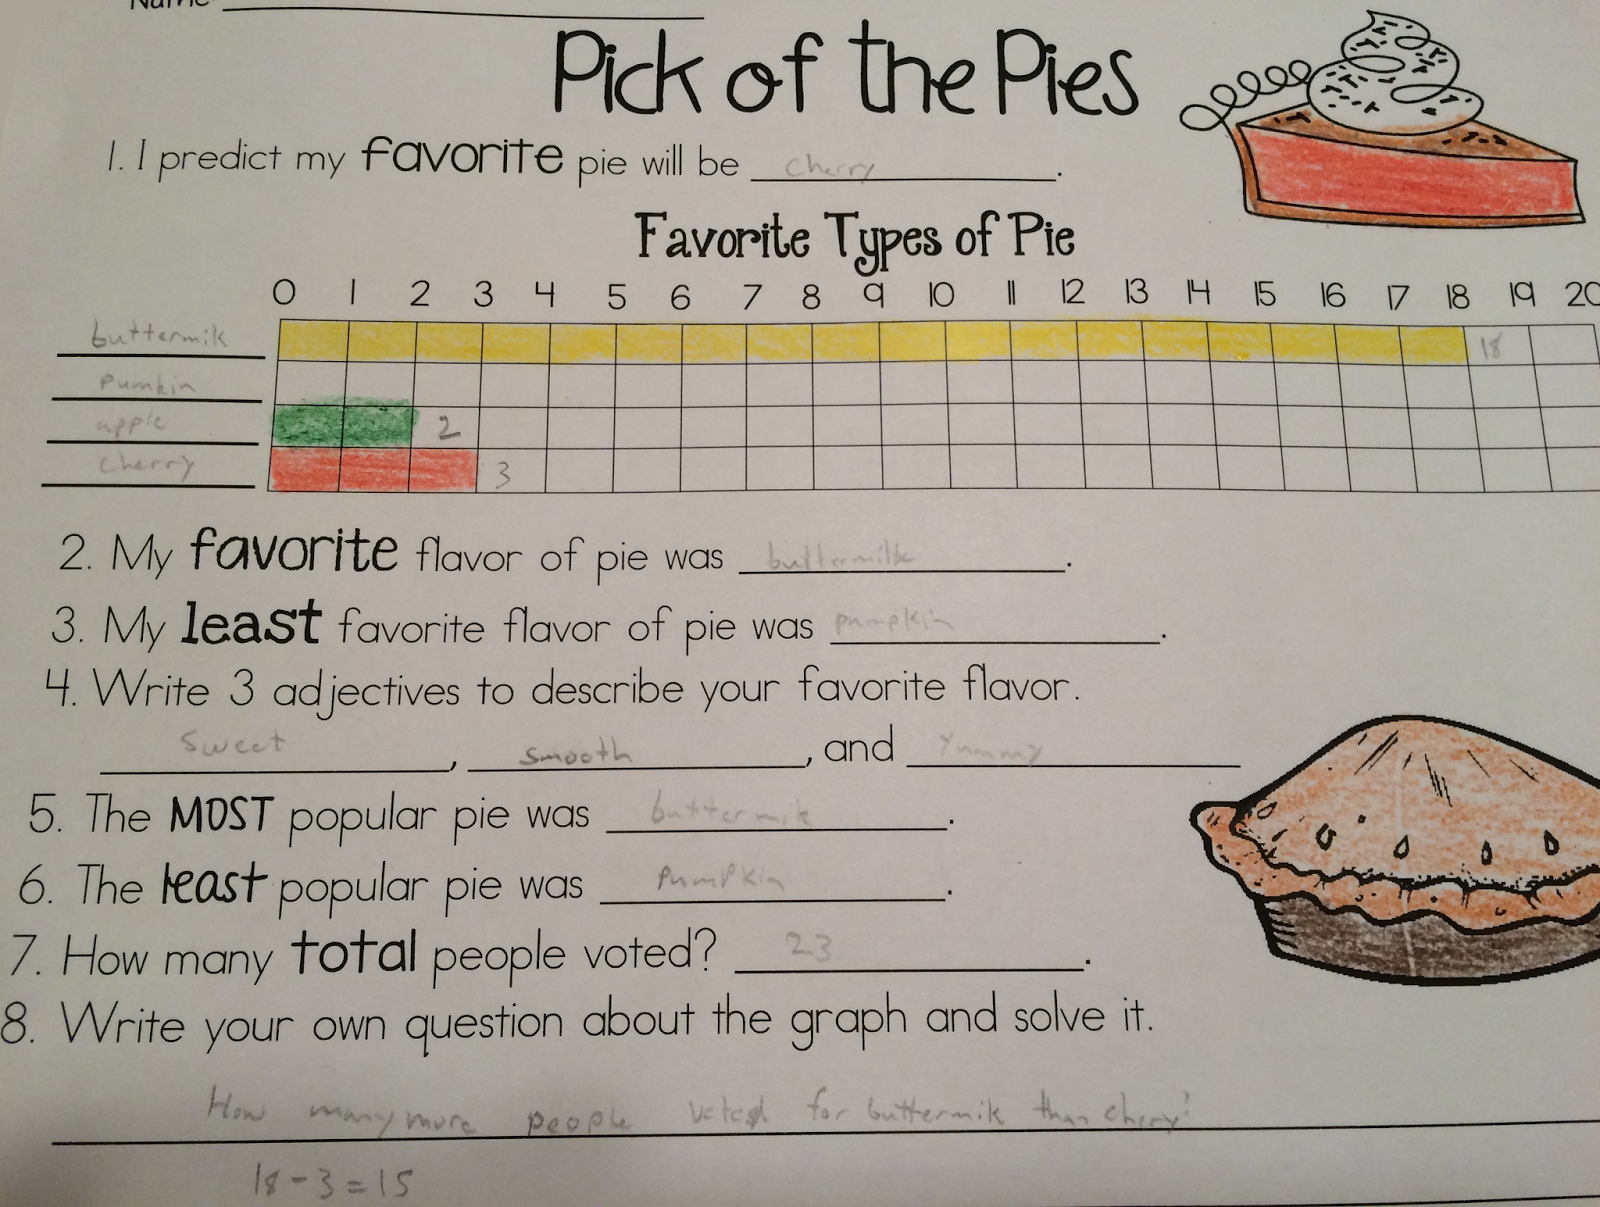 Name
Pick of the Pies
1. I predict my favorite pie will be cherry.
Favorite Types of Pie
0 1 2 3 4 5 6 7 8 9 10 11 12 13 14 15 16 17 18 19 20
buttermik 18
Pumkin
apple 2
Cherry 3
2. My favorite flavor of pie was buttermilk.
3. My least favorite flavor of pie was pumpkin.
4. Write 3 adjectives to describe your favorite flavor.
Sweet, smooth, and Yummy
5. The MOST popular pie was buttermik.
6. The least popular pie was PumPkin.
7. How many total people voted? 23.
8. Write your own question about the graph and solve it.
How many more people voted for buttermik than cherry?
18-3=15